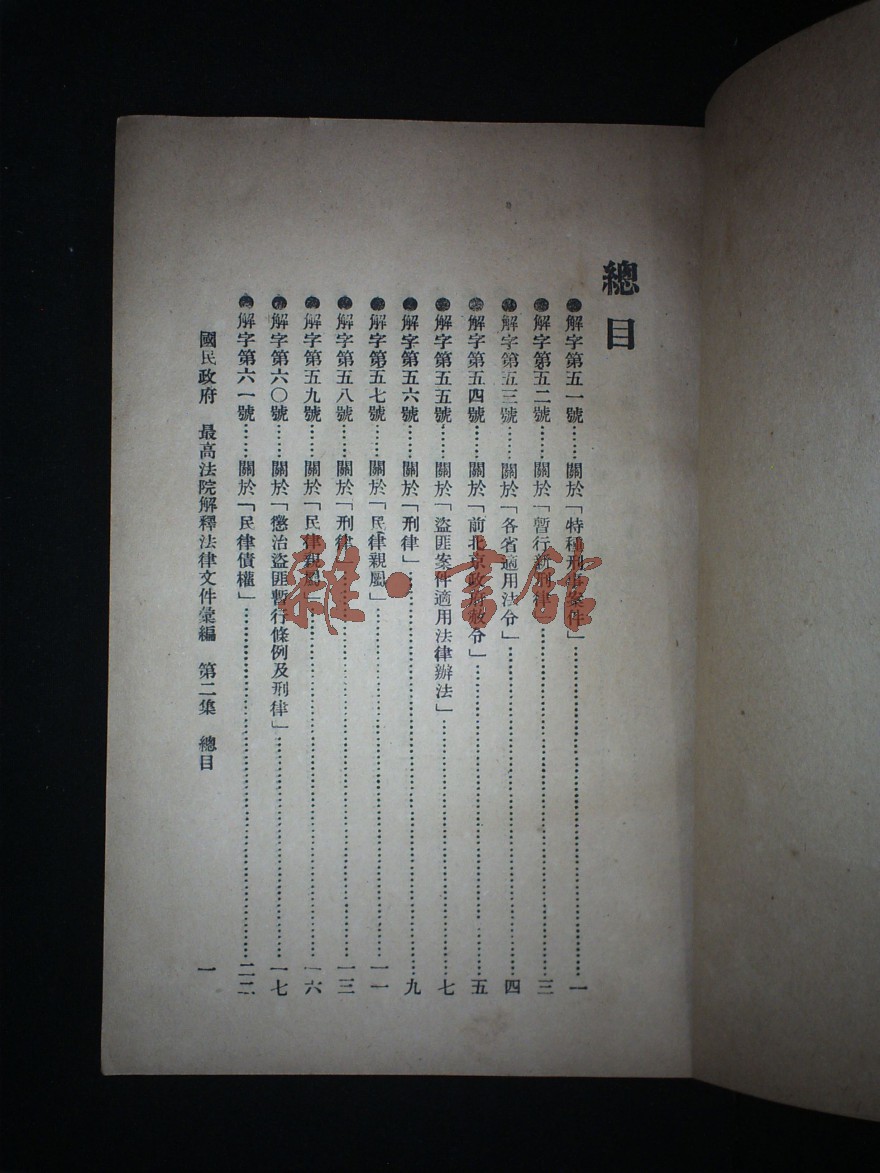 總目
●解字第五一號……關於「特種刑事案件」……一
●解字第五二號……關於「暫行新刑律」……三
●解字第五三號……關於「各省適用法令」……四
●解字第五四號……關於「前北京政府赦令」……五
●解字第五五號……關於「盜匪案件適用法律辦法」……七
●解字第五六號……關於「刑律」……九
●解字第五七號……關於「民律親屬」……一一
●解字第五八號……關於「刑律」……一三
●解字第五九號……關於「民律親屬」……一六
●解字第六〇號……關於「懲治盜匪暫行條例及刑律」……一七
●解字第六一號……關於「民律債權」……二二
國民政府 最高法院解釋法律文件彙編 第二集 總目 一
雜·書館